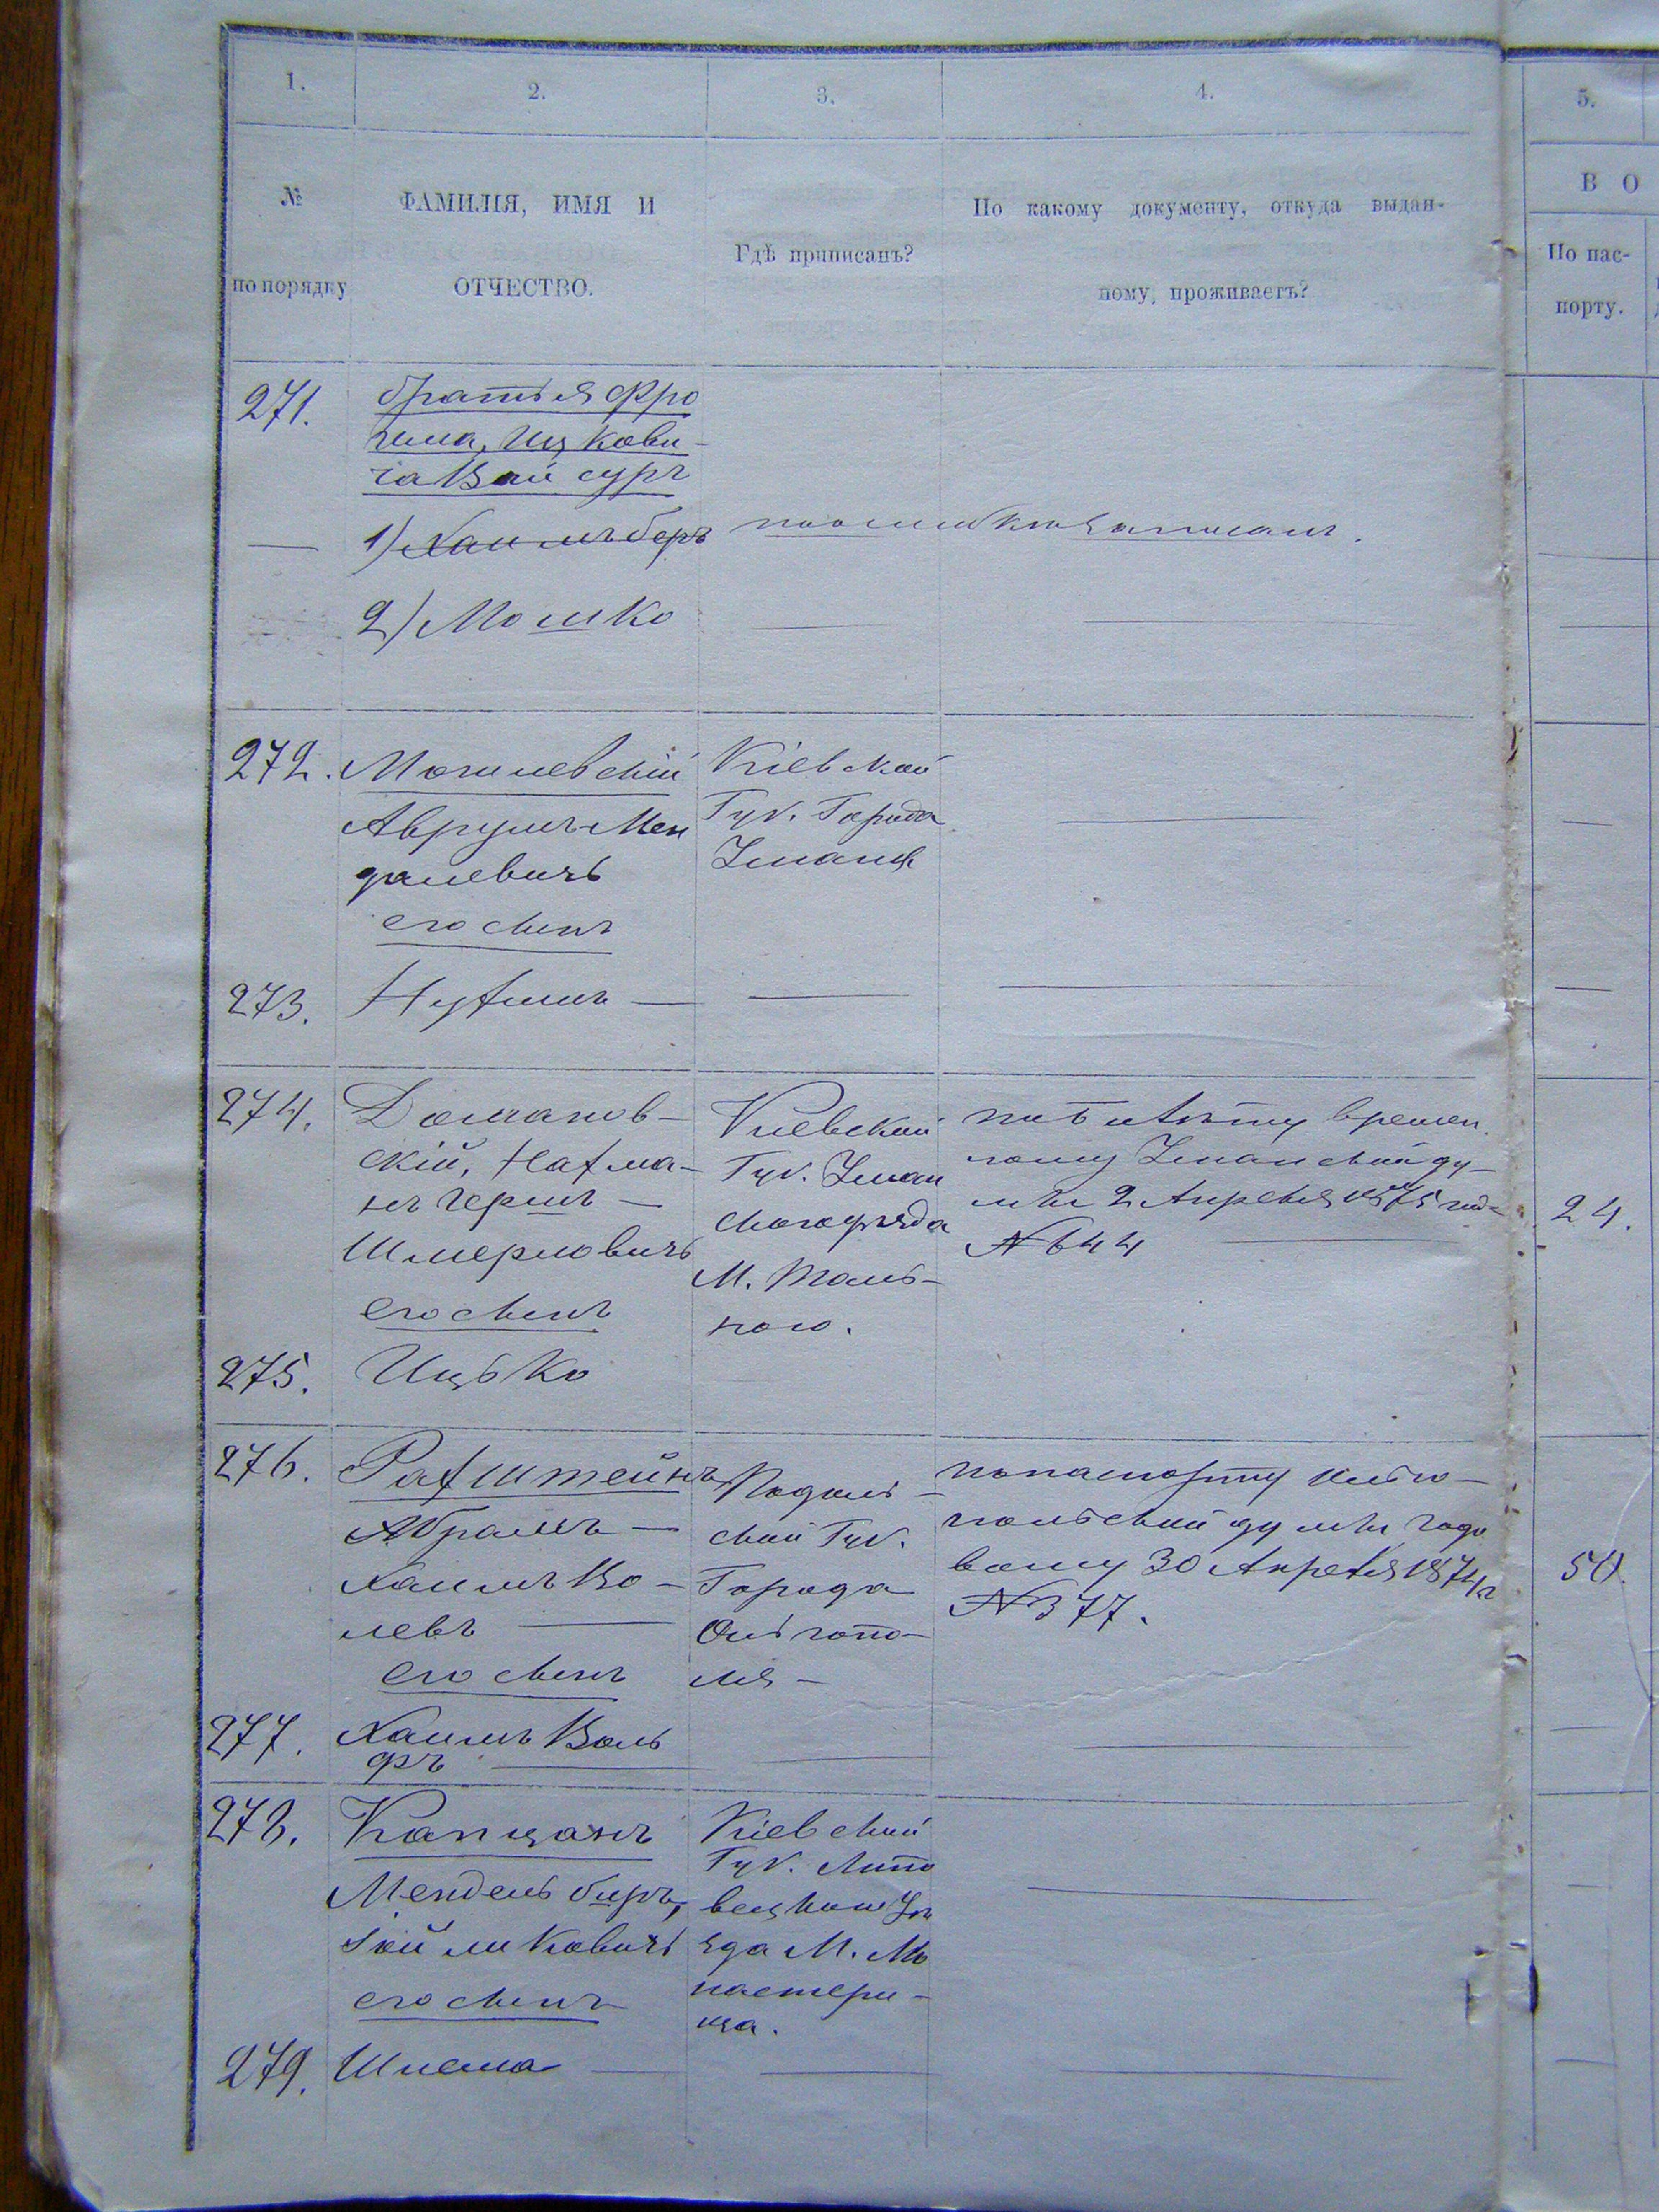 1.
2.
3.
4.
5.
№
по порядку
ФАМИЛІЯ, ИМЯ И
ОТЧЕСТВО.
Гдѣ приписанъ?
По какому документу, откуда выдан-
ному, проживаетъ?
В О
По пас-
порту.
271.
братья Фро
има, Ицкови-
ча Вайсуръ
1) Хаимъ беръ
по ошибкѣ записанъ.
2) Мошко
272.
Могилевскій
Аврумъ Мен
делевичъ
его сынъ
Кіевской
Губ. Города
Умани
273.
Нухимъ
274.
Доманов-
скій, Нахма-
нъ Гершъ
Шмерковичъ
его сынъ
Кіевской
Губ. Уман
скаго уѣзда
М. Таль-
наго.
по билету времен
ному Уманской ду-
мы 2 Апреля 1875 года
№ 644
24.
275.
Ицько
276.
Рахштейнъ
Абрамъ
Хаимъ Во-
левъ
его сынъ
Подоль-
ской Губ.
Города
Ольгопо-
ля
по паспорту Ольго-
польской думы годо
вому 30 Апреля 1874 г
№ 377.
50.
277.
Хаимъ Воль
фъ
278.
Капцанъ
Мендель беръ,
Іойликовичъ
его сынъ
Кіевской
Губ. Липо
вецкаго Уѣ
зда М. Мо
настери-
ща.
279.
Шлема